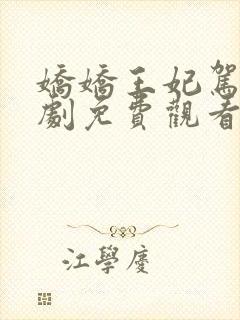 嬌嬌王妃駕
劇免費觀看
江學慶